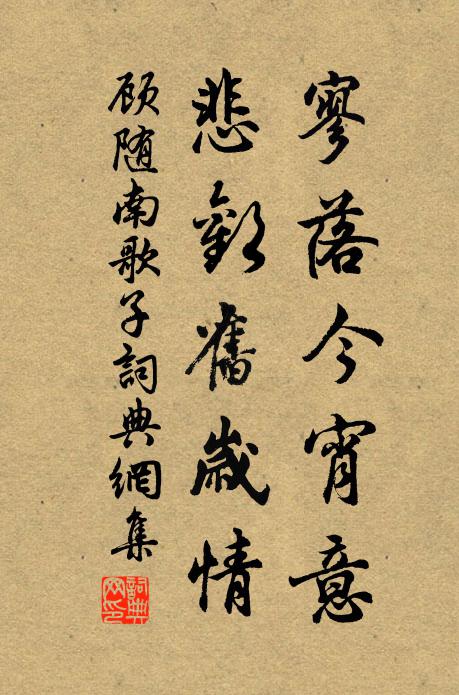 寥落今宵意
悲歡舊歲情
顾随南歌子詞典網集
詞典網印